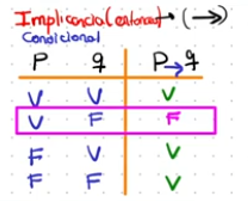 Implicancia (entonces) → (→)
Condicional
P q P→q
V V V
V F F
F V V
F F V